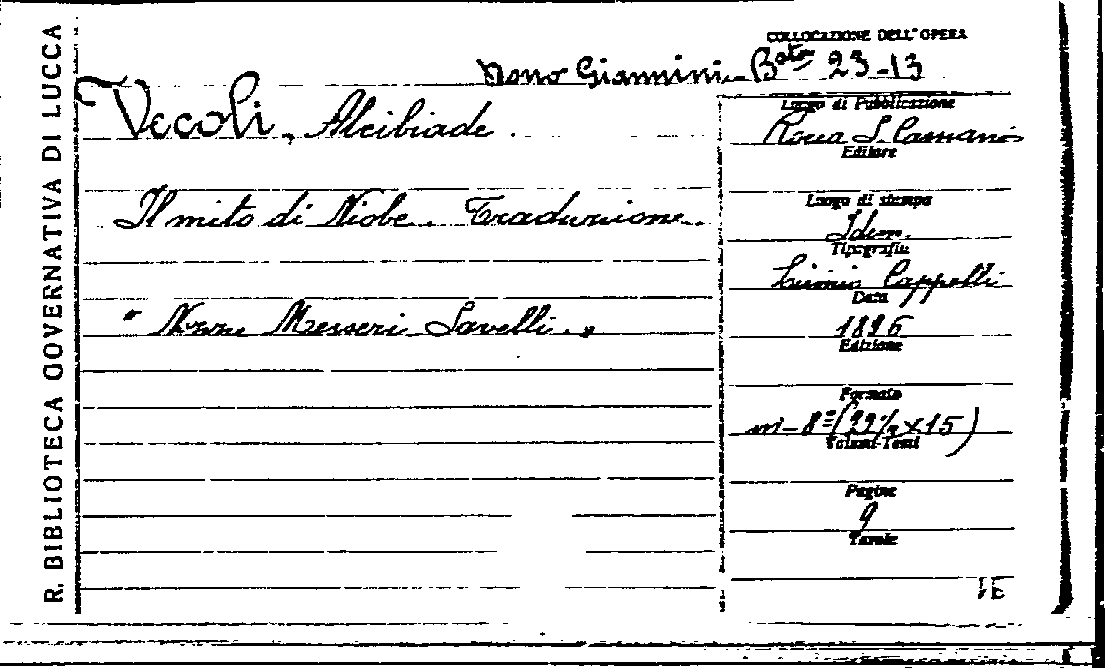 R. BIBLIOTECA GOVERNATIVA DI LUCCA
COLLOCAZIONE DELL'OPERA
Dono Giannini - Bta 23-13
Vecoli, Alcibiade.
Il mito di Niobe. Traduzione.
" Nozze Messeri Savelli. "
Luogo di Pubblicazione
Rocca S. Casciano
Editore
Luogo di stampa
Idem.
Tipografia
Licinio Cappelli
Data
1896
Edizione
Formato
in-8° (22½ x 15)
Volumi-Tomi
Pagine
9
Tavole